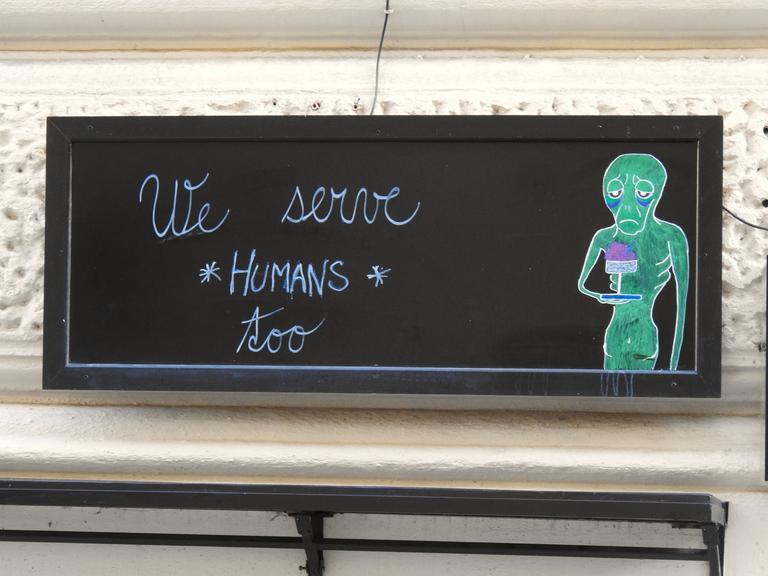 We serve
*HUMANS*
too